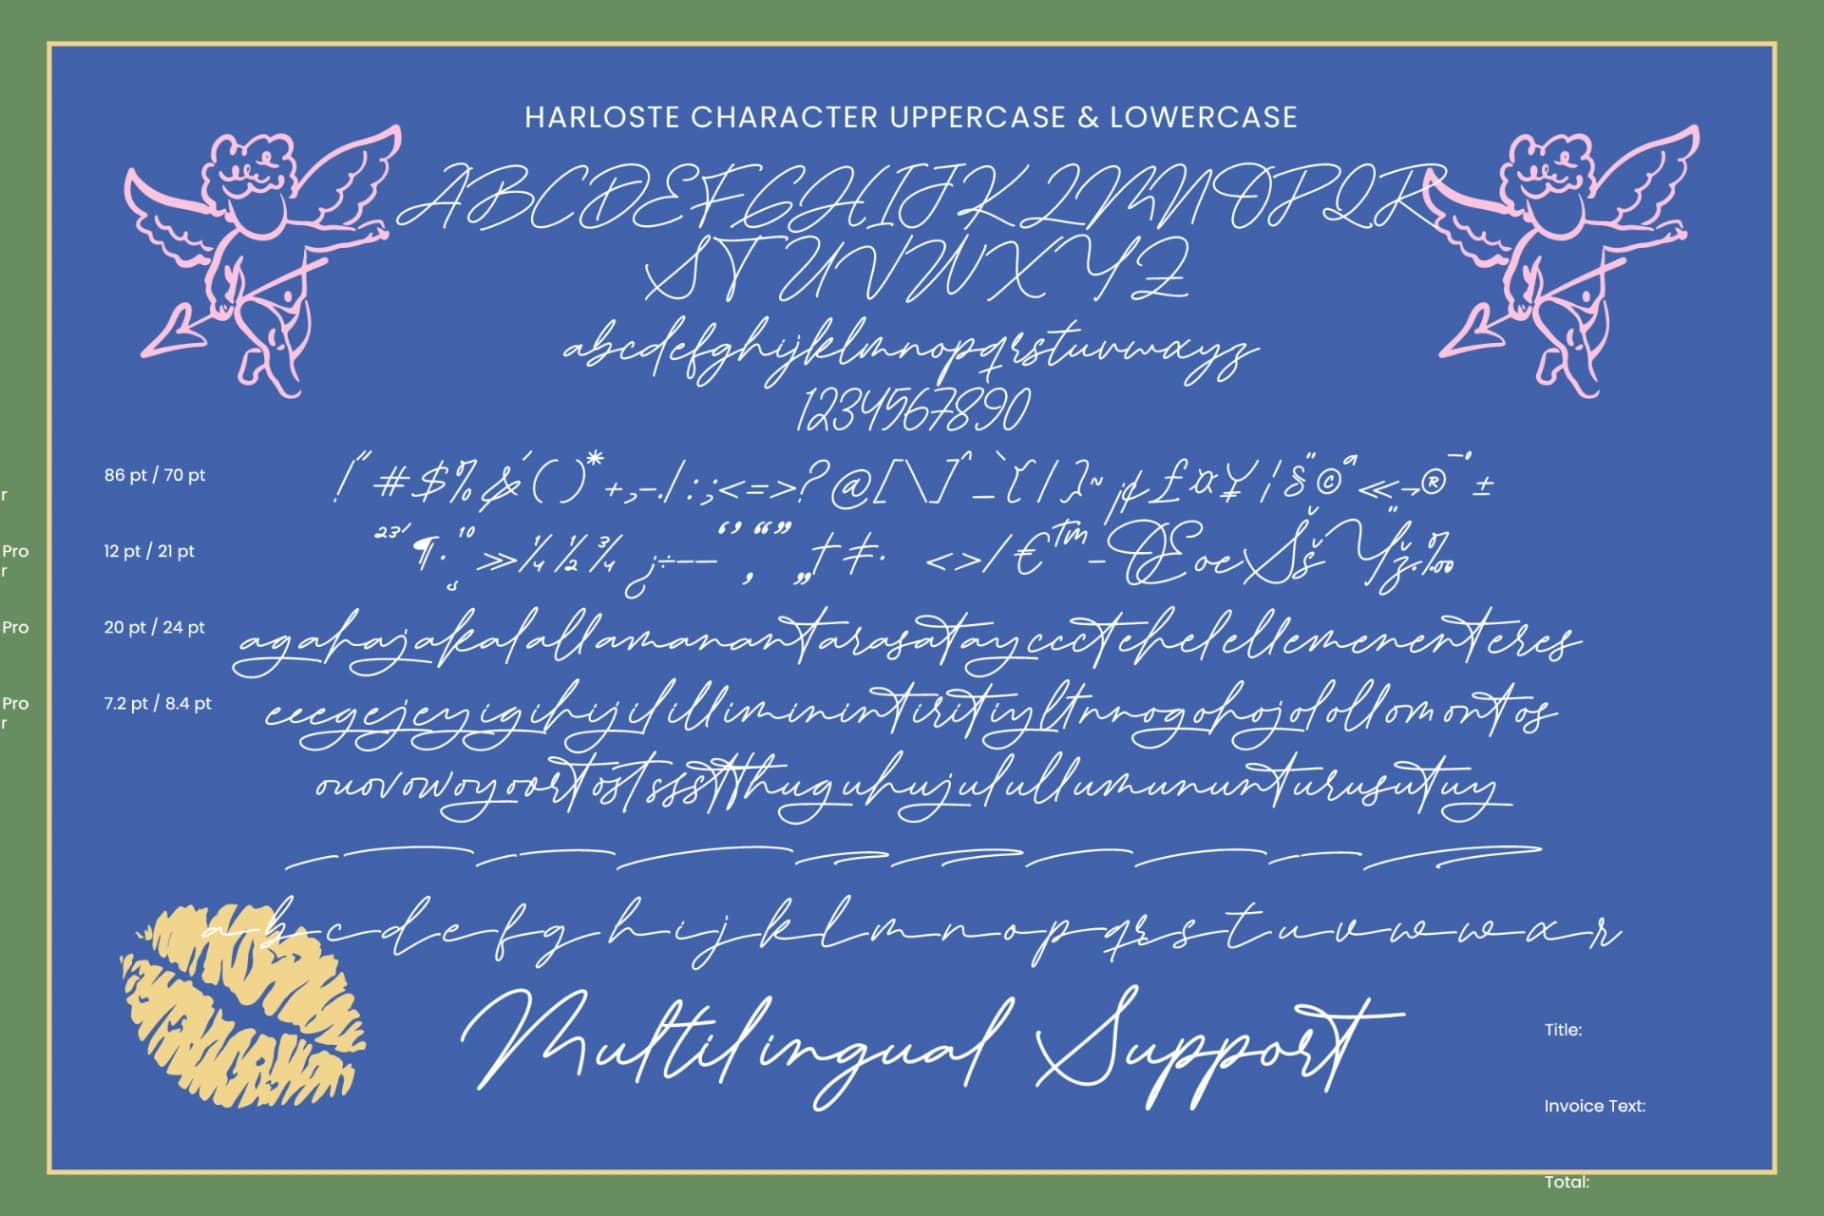 HARLOSTE CHARACTER UPPERCASE & LOWERCASE
ABCDEFGHIJKLMNOPQR
STUVWXYZ
abcdefghijklmnopqrstuvwxyz
1234567890
86 pt / 70 pt
!"#$%&'()*+,-./:;<=>?@[\]^_`{|}~¡¢£¤¥¦§¨©ª«¬®¯°±
r
12 pt / 21 pt
²³´¶·¸¹º»¼½¾¿÷–—‘’‚“”„†‡• ‹›⁄€™−ŒœŠšŸž‰
Pro
r
20 pt / 24 pt
Pro
agahajakalallamanantarasatayccctehelellemenenteres
7.2 pt / 8.4 pt
Pro
r
eeegejeyigihijililliminintiritiyltnnogohojolollomontos
ouovowoyoortostssstthuguhujulullumununturusutuy
a b c d e f g h i j k l m n o p q r s t u v w w x r
Multilingual Support
Title:
Invoice Text:
Total: